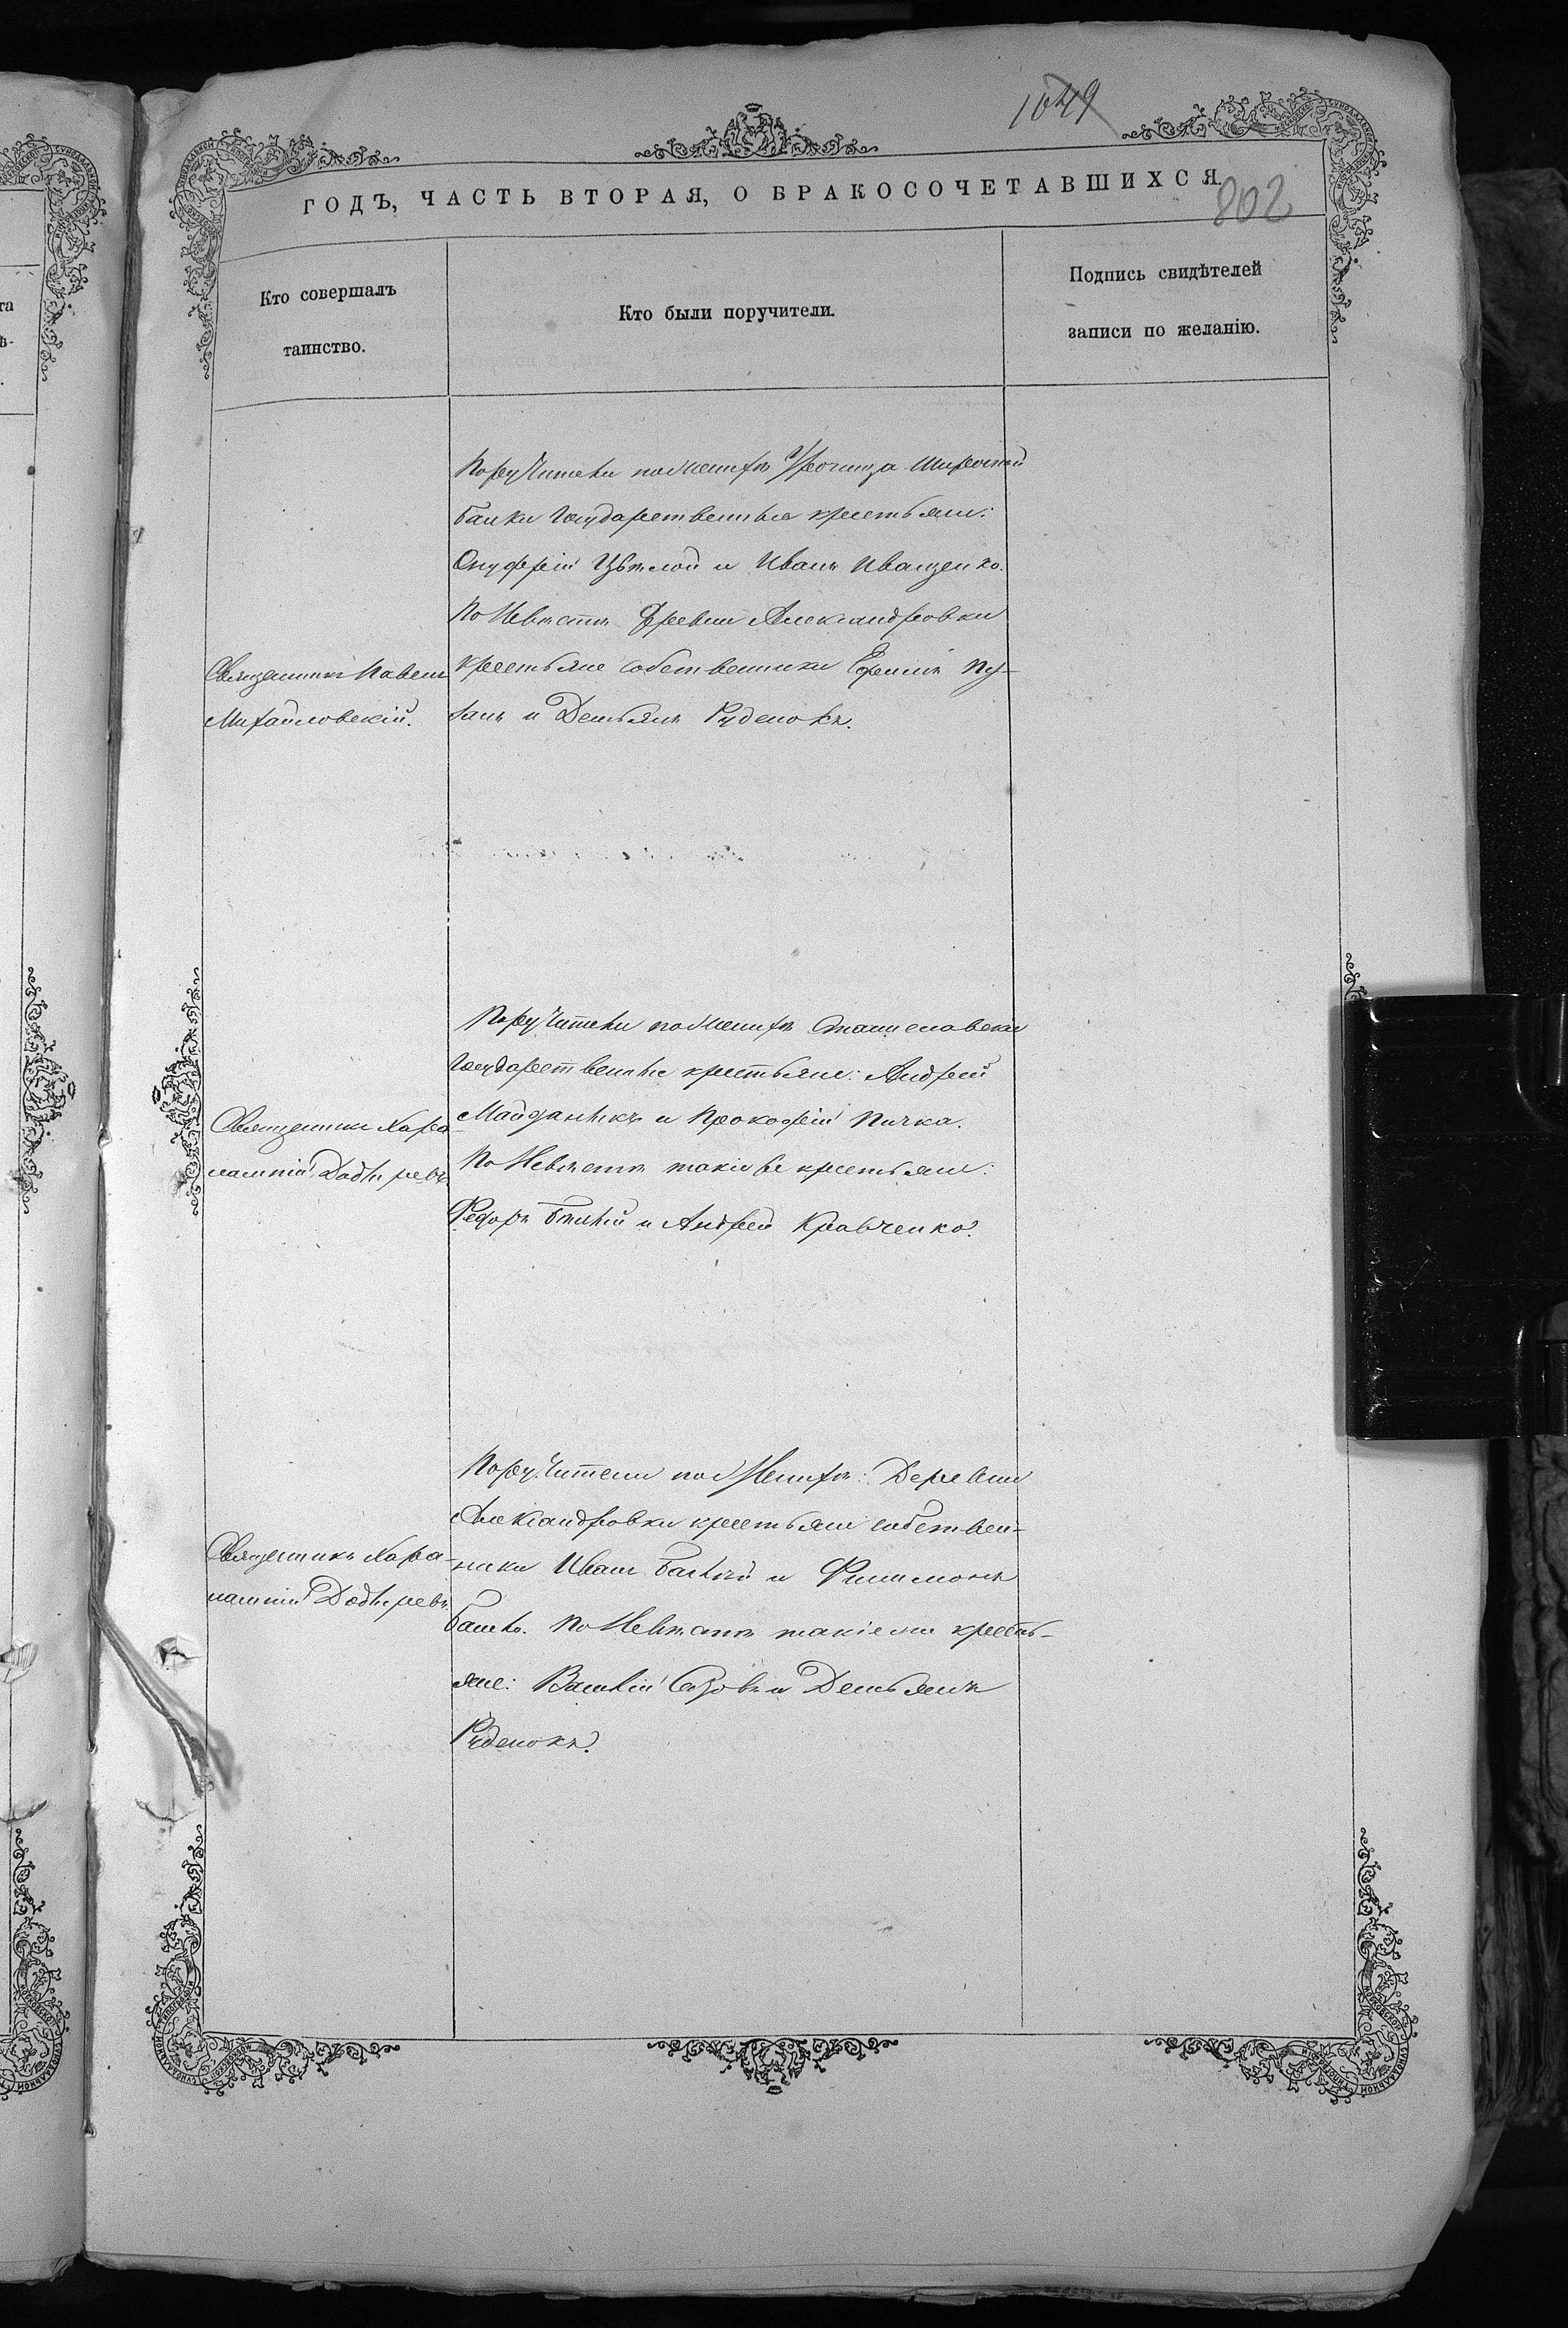 1049
802
ГОДЪ, ЧАСТЬ ВТОРАЯ, О БРАКОСОЧЕТАВШИХСЯ
Кто совершалъ
таинство.
Кто были поручители.
Подпись свидѣтелей
записи по желанію.
Поручители по Женихѣ Урочища Широкой
балки Государственные крестьяне:
Онуфрій Цѣлой и Иванъ Иващенко.
По Невѣстѣ Деревни Александровки
крестьяне собственники Ефимъ Пу-
занъ и Демьянъ Руденокъ.
Священникъ Павелъ
Михайловскій.
Поручители по Женихѣ Станиславски
Государственные крестьяне: Андрей
Майданикъ и Прокофій Пичка.
По Невѣстѣ такіе же крестьяне:
Федоръ Бѣлый и Андрей Кравченко.
Священникъ Хара-
лампій
Поручители по Женихѣ: Деревни
Александровки крестьяне собствен-
ники Иванъ и Филимонъ
По Невѣстѣ такіе же кресть-
яне: Василій и Демьянъ
Руденокъ.
Священникъ Хара-
лампій